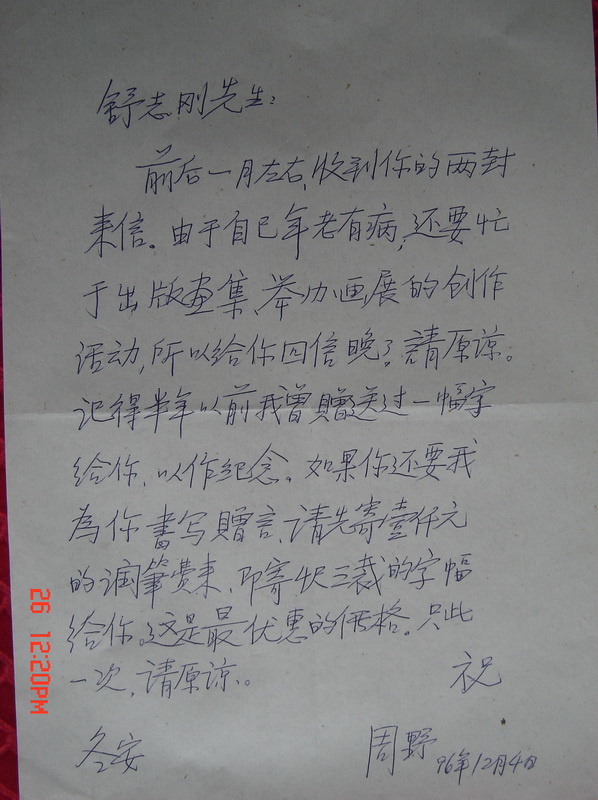 舒志刚先生：
前后一月左右,收到你的两封
来信。由于自己年老有病,还要忙
于出版畫集、举办画展的创作
活动,所以给你回信晚了,請原谅。
记得半年以前我曾贈送过一幅字
给你,以作纪念。如果你还要我
為你書写贈言,请先寄壹仟元
的润筆费来,即寄 三裁的字幅
给你。这是最优惠的價格。只此
一次,请原谅。 祝
冬安 周野 96年12月4日
26 12:20PM